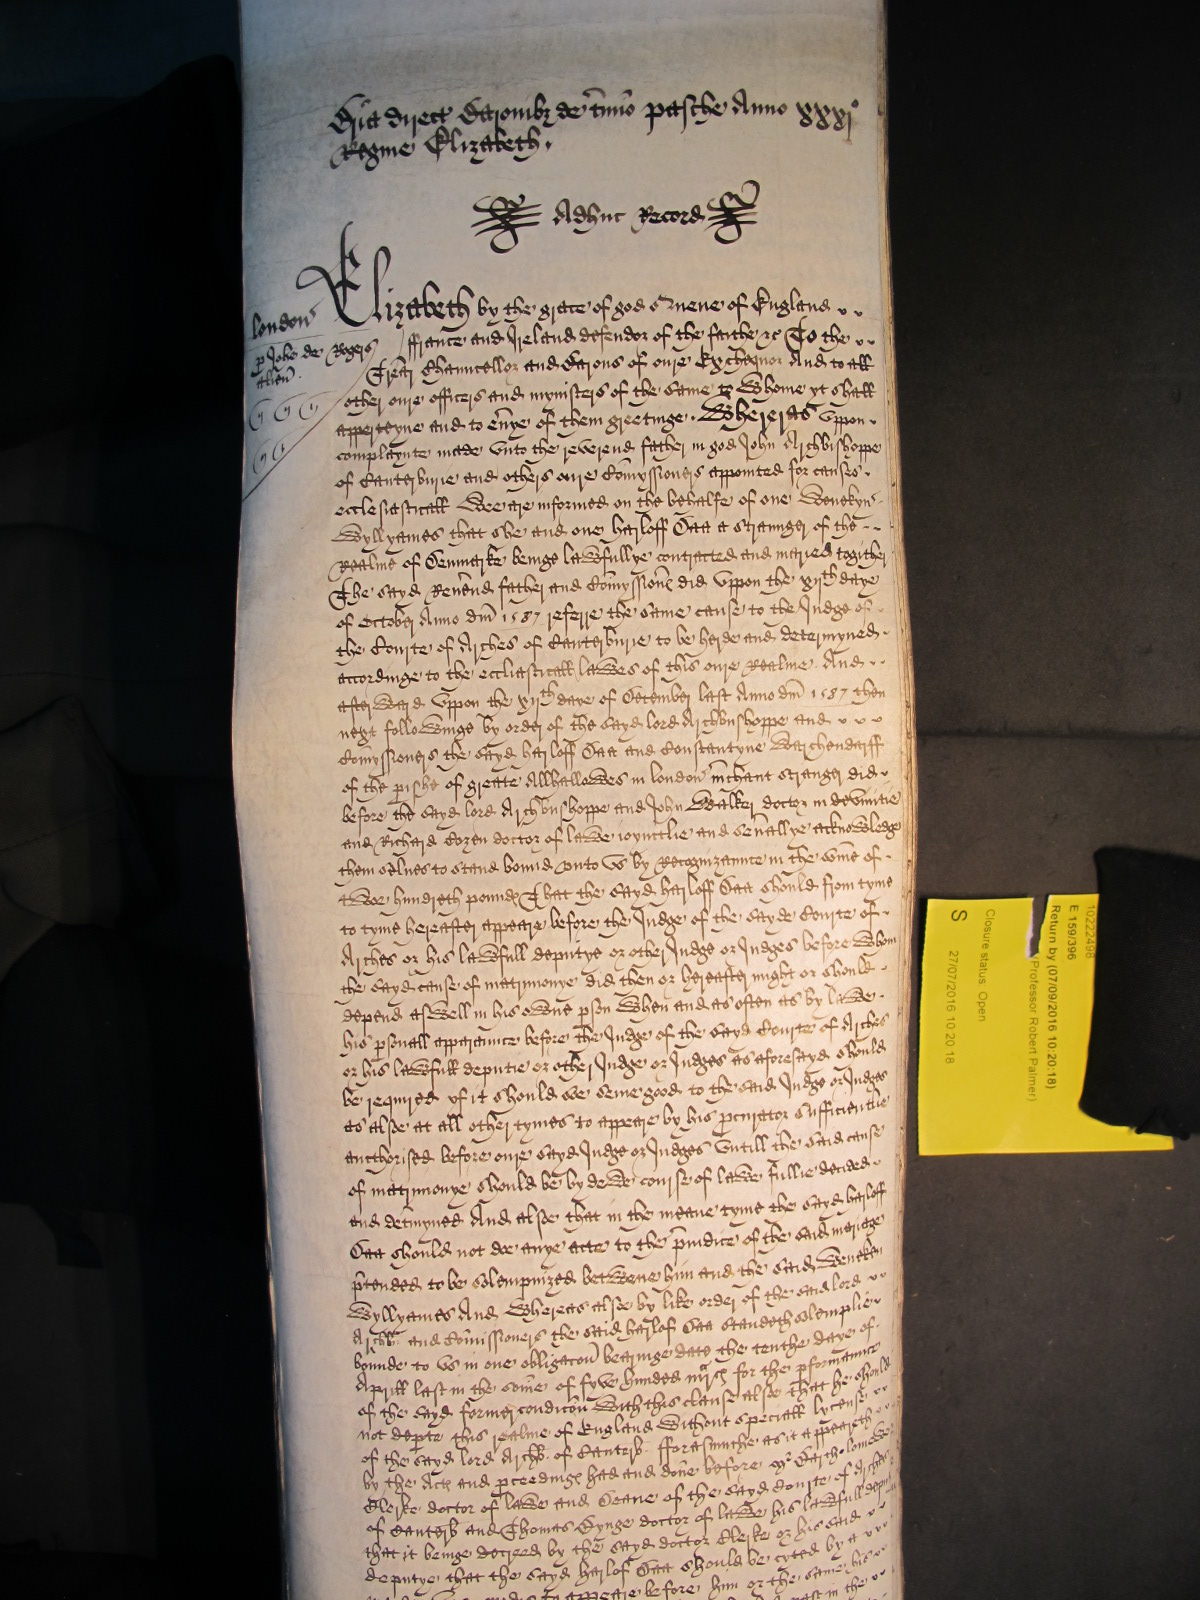 Bria direct Baronibz de t'mio pasche Anno xxxi°
Regine Elizabeth.
Adhuc Record
london
p Joh'e de Rogers
alien
Elizabeth by the grace of god Quene of England
ffrance and Ireland defendor of the faithe &c To the
Trer Chauncellor and Barons of oure Exchequor And to all
other oure officers and mynisters of the same to Whome yt shall
apperteyne and to eu'ye of them greetinge. Whereas vppon
complaynte made vnto the reverend father in god John Archbishoppe
of Canterburie and others oure Comyssioners appointed for causes
ecclesiasticall Wee are informed on the behalfe of one Weneken
Wyllyames that she and one harloff Saa a straunger of the
Realme of Denmarke beinge lawfullye contracted and maried togither
The sayd Reu'end father and Comyssion's did vppon the xiith daye
of October Anno dm' 1587 referre the same cause to the Judge of
the Courte of Arches of Canterburie to be herde and determyned
accordinge to the eccliasticall lawes of this oure Realme And
afterward vppon the xiith daye of December last Anno dm' 1587 then
next followinge by order of the sayd lord Archbushoppe and
Comyssioners the sayd harloff Saa and Constantyne Warchendorff
of the p'ishe of greate Allhallowes in london m'chant stranger did
before the sayd lord Archbushoppe and John Walker doctor in devinitie
and Richard Cozen doctor of lawe ioyntlie and seu'allye acknowledge
them selues to stand bound vnto vs by Recognizaunce in the some of
twoe hundreth pound's That the sayd harloff Saa should from tyme
to tyme hereafter appeare before the Judge of the sayde Courte of
Arches or his lawfull deputye or other Judge or Judges before whom
the sayd cause of matrimonye did then or hereafter might or should
depend aswell in his owne p'son when and as often as by lawe
his p'sonall apparaunce before the Judge of the sayd Courte of Arches
or his lawfull deputie or other Judge or Judges as aforesayd should
be required yf it should soe seme good to the said Judge or Judges
as alsoe at all other tymes to appeare by his p'curator sufficientlie
aucthorised before oure sayd Judge or Judges vntill the said cause
of matrimonye should be by dewe course of lawe fullie decided
and det'myned And alsoe that in the meane tyme the sayd harloff
Saa should not doe anye acte to the p'iudice of the said mariage
p'tended to be solempnized betwene him and the said Weneken
Wyllyames And Whereas alsoe by like order of the said lord
Archb. and Comissioners the said harlof Saa standeth solemplie
bounde to vs in one obligacon bearinge date the tenthe daye of
Aprill last in the some of fyve hundred m'kes for the p'formaunce
of the sayd former condicon With this clause alsoe that he should
not dep'te this realme of England without speciall lycense
of the sayd lord Archb. of Canterb. fforasmuche as it appeareth
by the Acts and p'ceedings had and done before Mr Bartholomewe
Clerke doctor of lawe and Deane of the sayd Courte of Arches
of Canterb and Thomas Bynge doctor of lawe his lawfull deputie
that it beinge decreed by the sayd doctor Clerke or his said
deputye that the sayd harlof Saa should be cyted by a
to appeare before him or the same his
10222498
E 159/396
Return by (07/09/2016 10:20:18)
(Professor Robert Palmer)
Closure status: Open
S
27/07/2016 10:20:18